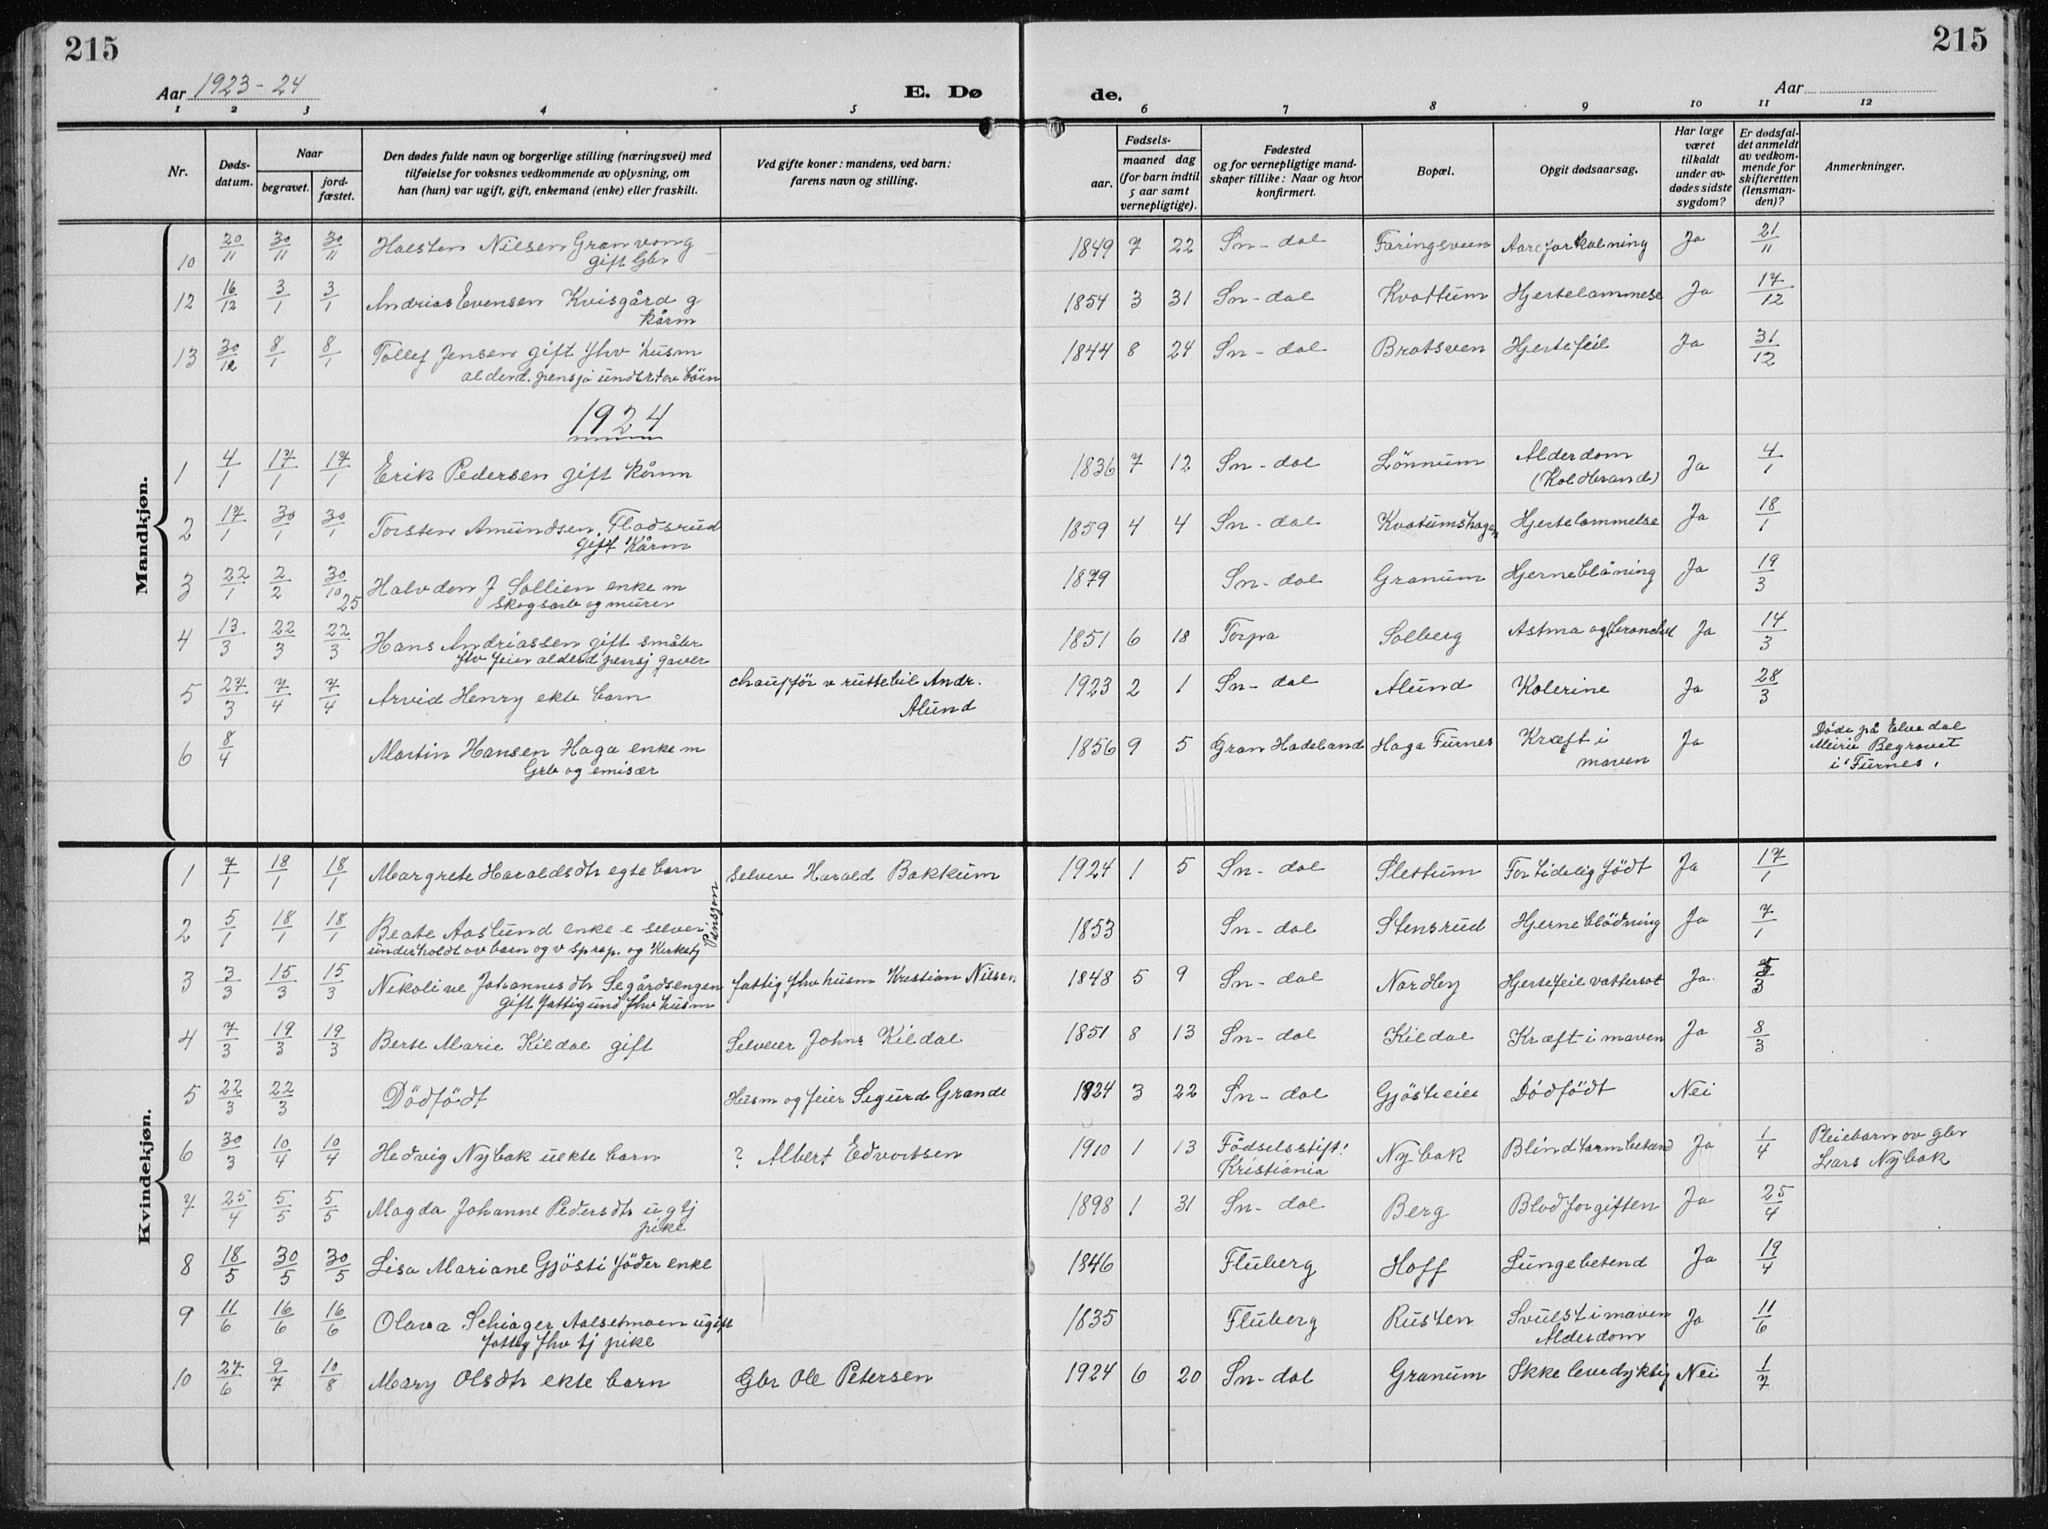 215
215
Aar 1923-24
E. Dø
de.
Aar
1 2 3 4 5 6 7 8 9 10 11 12
Nr.
Døds-
datum.
Naar
begravet.
jord-
fæstet.
Den dødes fulde navn og borgerlige stilling (næringsvei) med
tilføielse for voksnes vedkommende av oplysning, om
han (hun) var ugift, gift, enkemand (enke) eller fraskilt.
Ved gifte koner: mandens, ved barn:
farens navn og stilling.
Fødsels-
aar.
maaned dag
(for barn indtil
5 aar samt
vernepligtige).
Fødested
og for vernepligtige mand-
skaper tillike: Naar og hvor
konfirmert.
Bopæl.
Opgit dødsaarsag.
Har læge
været
tilkaldt
under av-
dødes sidste
sygdom?
Er dødsfal-
det anmeldt
av vedkom-
mende for
skifteretten
(lensman-
den)?
Anmerkninger.
Mandkjøn.
10 20/11 30/11 30/11 Halsten Nilsen Granvong 1849 7 22 Sn-dal Faringsveen Aareforkalning Ja 21/11
gift Gbr
12 16/12 3/1 3/1 Andrias Evensen Kvisgård g 1854 3 31 Sn-dal Kvattum Hjertelammese Ja 17/12
kårm
13 30/12 8/1 8/1 Tollef Jensen gift fhv husm 1844 8 24 Sn-dal Bratsven Hjertefeil Ja 31/12
alderd. pensjo
1924
1 4/1 17/1 17/1 Erik Pedersen gift kårm 1836 7 12 Sn-dal Lönnum Alderdom Ja 4/1
(Koldbrand)
2 17/1 30/1 30/1 Torsten Amundsen Fladsrud 1859 4 4 Sn-dal Kvatumshagen Hjertelammelse Ja 18/1
gift Kårm
3 22/1 2/2 30/10 25 Halvdon J Sollien enke m 1879 Sn-dal Granum Hjerneblåning Ja 19/3
Skogsarb og murer
4 13/3 22/3 22/3 Hans Andriassen gift småbr 1851 6 18 Torpa Solberg Astma og bronchit Ja 14/3
fhv feier alderd pensj gaver
5 27/3 7/4 7/4 Arvid Henry ekte barn chaufför v ruttebil Andr. 1923 2 1 Sn-dal Alund Kolerine Ja 28/3
Alund
6 8/4 Martin Hansen Haga enke m 1856 9 5 Gran Hadeland Haga Furnes Kræft i Ja
Grb og emisær
maven
Døde på Elvedal
Meiri Begravet
i Furnes.
Kvindekjøn.
1 7/1 18/1 18/1 Margrete Haraldsdtr egte barn selveie Harald Bakkum 1924 1 5 Sn-dal Slettum For tidelig födt Ja 17/1
2 5/1 18/1 18/1 Beate Aaslund enke e selvei 1853 Sn-dal Stensrud Hjerneblödning Ja 7/1
underholdt av barn og v sprap. og Kirketj Pensjon
3 3/3 15/3 15/3 Nekoline Johannesdtr Segårdsengen fattig fhv husm Kristian Nilsen 1848 5 9 Sn-dal Nordby Hjertefeil vattersot Ja. 5/3
gift fattig und fhv husm
4 7/3 19/3 19/3 Berte Marie Kildal gift Selveier Johns Kildal 1851 8 13 Sn-dal Kildal Kræft i maven Ja 8/3
5 22/3 22/3 Dödfödt Husm og feier Sigurd Grande 1924 3 22 Sn-dal Gjösteeie Dödfödt Nei
6 30/3 10/4 10/4 Hedvig Nybak uekte barn ? Albert Edvartsen 1910 1 13 Födselsstift: Nybak Blindtarmbetænd Ja 1/4 Pleiebarn av gbr
Kristiania
Lars Nybak
7 25/4 5/5 5/5 Magda Johanne Pedersdtr ug tj 1898 1 31 Sn-dal Berg Blodforgiften Ja 25/4
pike
8 18/5 30/5 30/5 Lisa Mariane Gjösti föder enke 1846 Fluberg Hoff Lungebetend Ja 19/4
9 11/6 16/6 16/6 Olava Schiager Aalsetmoen ugift 1835 Fluberg Rusten Svulst i maven Ja 11/6
fattig fhv tj pike
Alderdom
10 27/6 9/7 10/8 Mary Olsdtr ekte barn Gbr Ole Petersen 1924 6 20 Sn-dal Granum Ikke levedyktig Nei 1/7